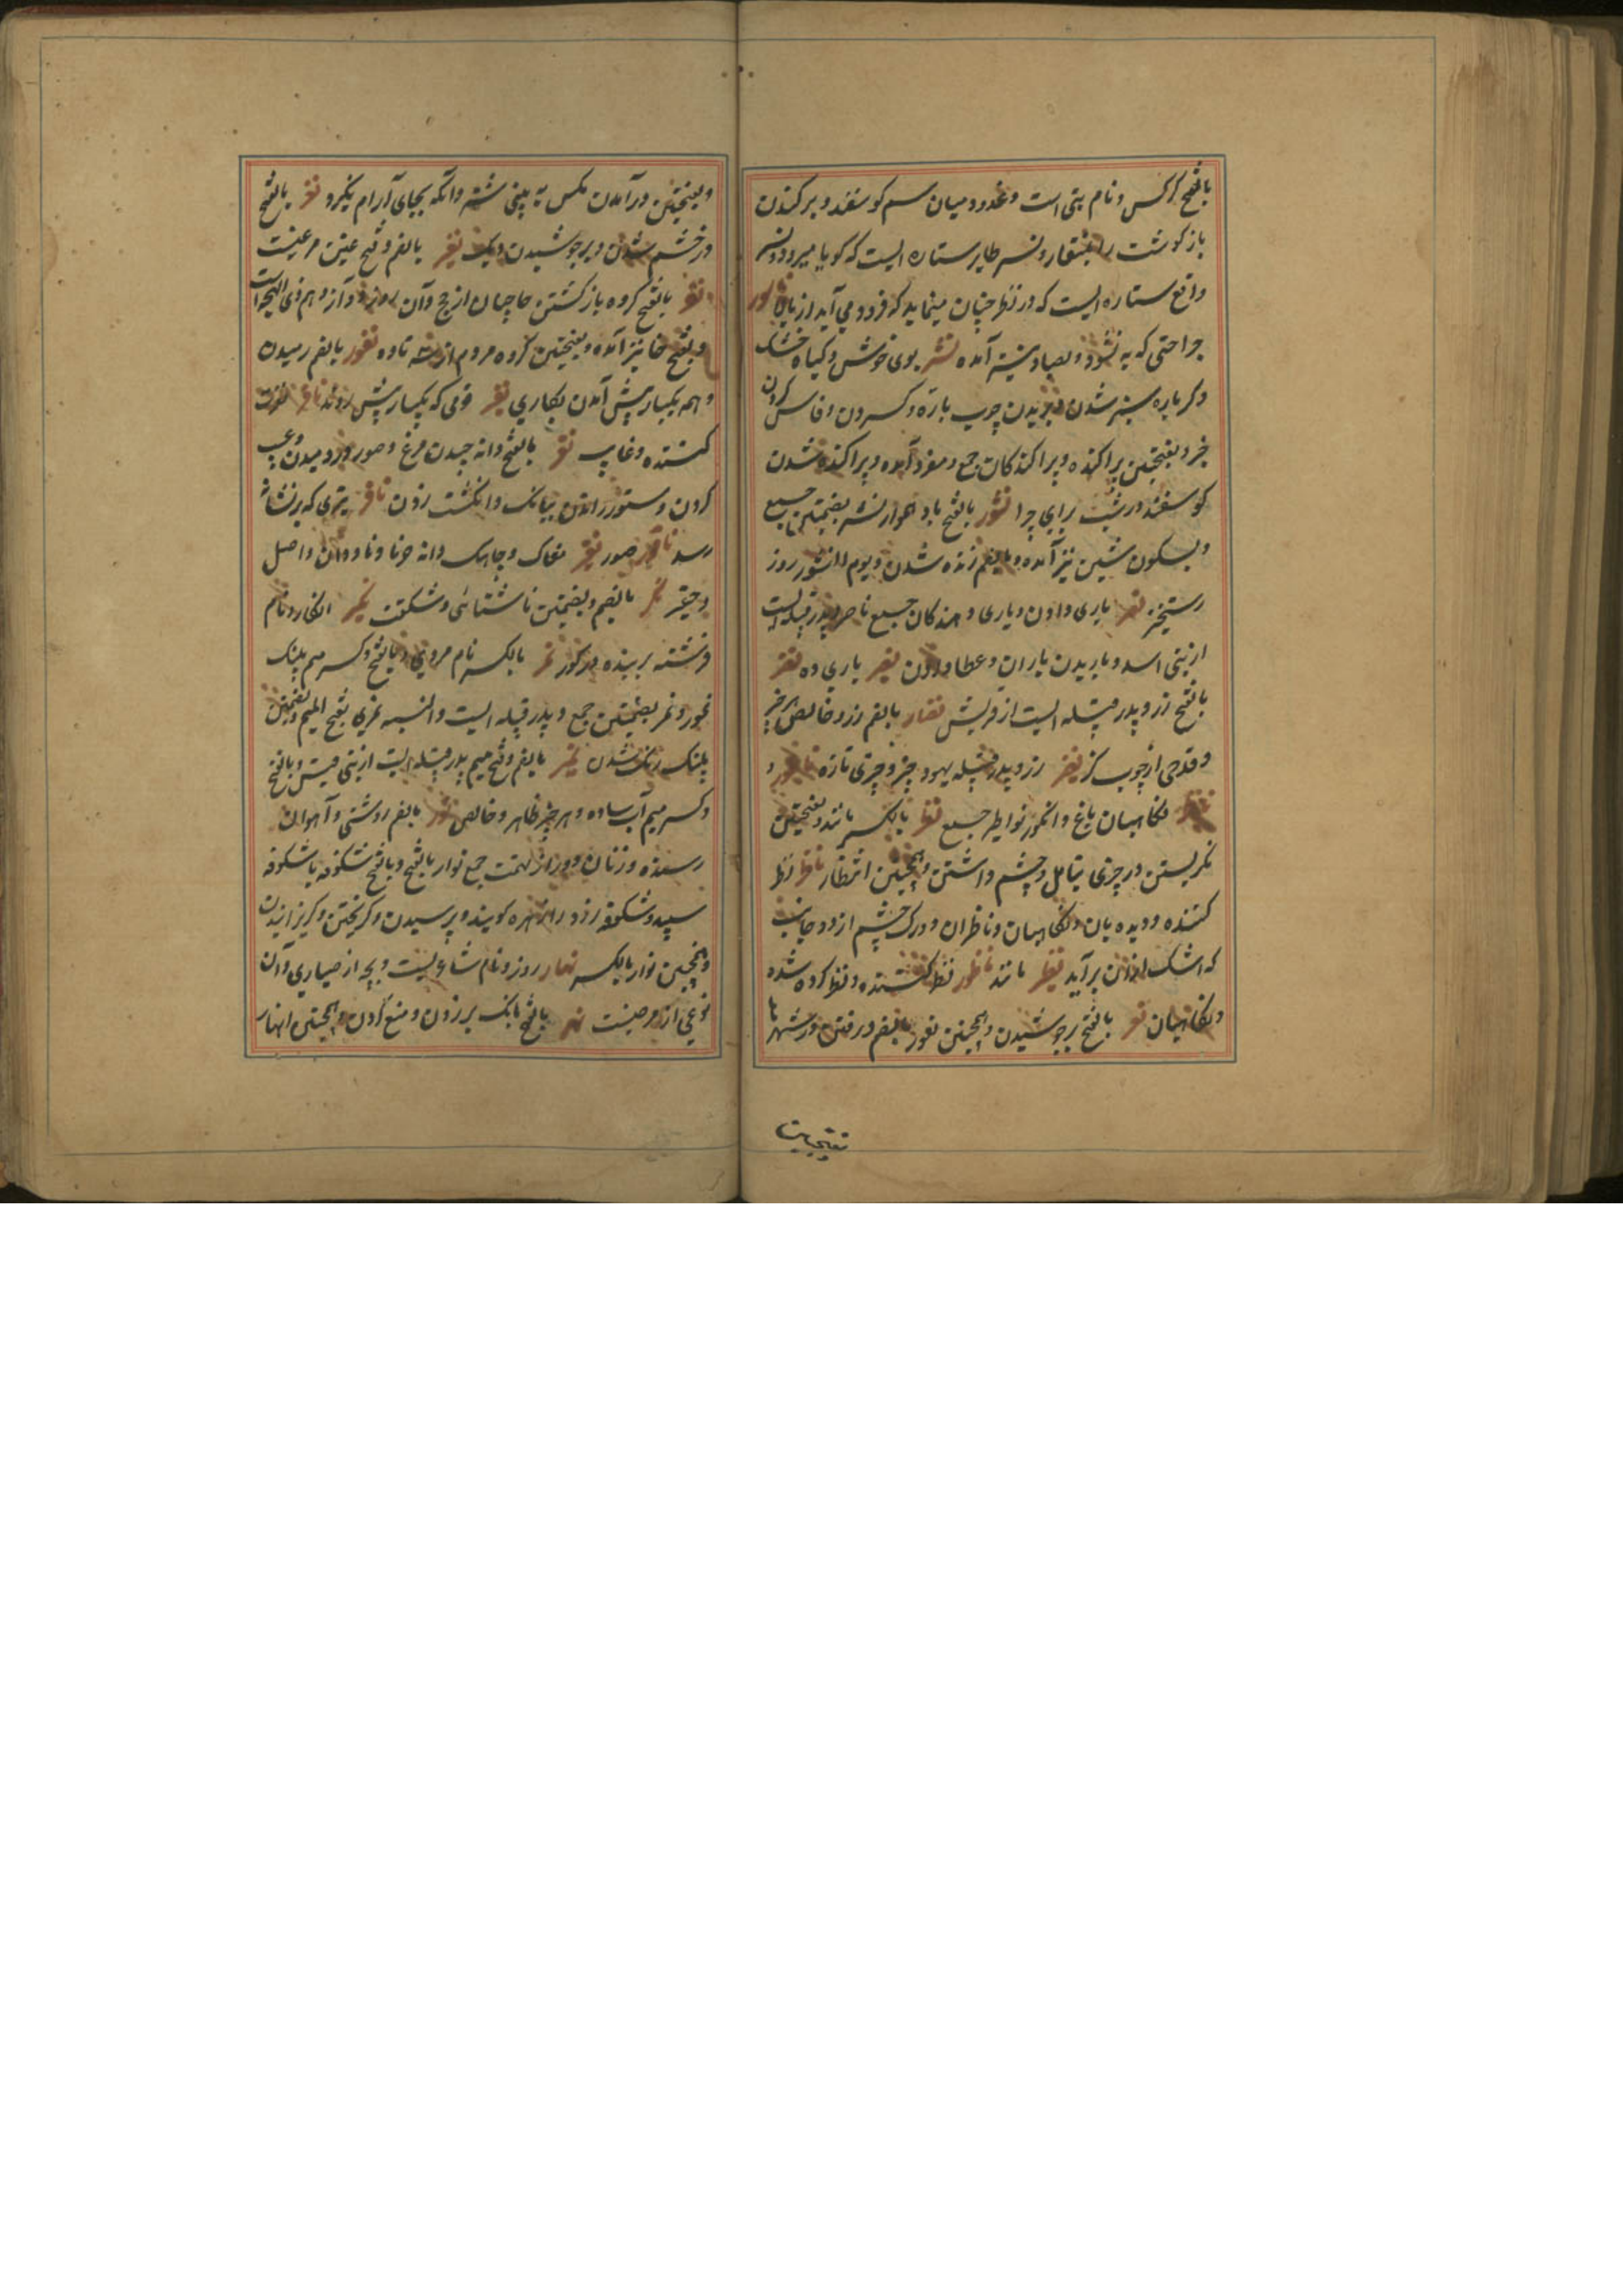 بالفتح کرکس و نام بتی است و غدود میان سم کوسفند و بر کندن
باز کوشت را بمنقار و نسر طایر ستاره ایست که کویا میرود و نسر
واقع ستاره ایست که در نظر چنان مینماید که فرود می آید از بالا ناسور
جراحتی که به نشود و بصاد نیز آمده نشر بوی خوش و کیاه خشک
دکرباره سبز شدن و بریدن چوب باره و کستردن و فاش کردن
خبر و بفتحتین پراکنده و پراکندکان جمع و مفرد آمده و پراکنده شدن
کوسفند در شب برای چرا نشور بالفتح باد هوار نشر بضمتین جمع
و بسکون شین نیز آمده و بالضم زنده شدن و یوم النشور روز
رستخیز نصر یاری دادن و یاری دهندکان جمع ناصر و پدر قبیله ایست
از بنی اسد و باریدن باران و عطا دادن نصیر یاری ده نضر
بالفتح زر و پدر قبیله ایست از قریش نضار بالضم زر و خالص هر چیز
و قدحی از چوب کز نضیر زر و پدر قبیله یهود و چیزی تازه ناطور و
نکاهبان باغ و انکور نواطیر جمع نظر بالکسر مانند و بفتحتین
نکریستن در چیزی بتامل و چشم داشتن و همچنین انتظار ناظر نظر
کننده و دیده بان و نکاهبان و ناظران دو رک چشم از دو جانب
که اشک از آن بر آید نظیر مانند ناظور نظر کننده و نظر کرده شده
و نکاهبان نغر بالفتح بر جوشیدن و همچنین نغور بالضم و رفتن در شهرها
و بفتحتین در آمدن مکس به بینی شتر و آنکه بجای آرام نکیرد نغر بالفتح
در خشم شدن و بر جوشیدن دیک نغر بالضم و فتح غین مرغیست
نفر بالفتح کروه باز کشتن حاجیان از حج و آن روز دوازدهم ذی الحجه است
و بفتح فا نیز آمده و بفتحتین کروه مردم از سه تا ده نفور بالضم رمیدن
و همه یکبار پیش آمدن بکاری نفیر قومی که یکبار پیش روند نافر نفرت
کننده و غالب نقر بالفتح دانه چیدن مرغ و صور در دمیدن و عیب
کردن و ستور راندن ببانک و انکشت زدن ناقر تیری که بر نشانه
رسد ناقور صور نقیر مغاک و چاهک دانه خرما و ناودان و اصل
و حقیر نکر بالضم و بضمتین ناشناسی و شکفت نکیر انکار و نام
فرشته پرسنده در کور نمر بالکسر نام مردی و بالفتح و کسر میم پلنک
نمور و نمر بضمتین جمع و پدر قبیله ایست و النسبه نمری بفتح المیم و بفتحتین
پلنک رنک شدن نمیر بالضم و فتح میم پدر قبیله ایست از بنی قیس و بالفتح
و کسر میم آب ساده و هر چیز ظاهر و خالص نور بالضم روشنی و آهوان
رمنده و زنان دور از تهمت جمع نوار بالفتح و بالفتح شکوفه یا شکوفه
سپید و شکوفه زرد را زهره کویند و پرسیدن و کریختن و کریزانیدن
و همچنین نوار بالکسر نهار روز و نام شاعریست و بچه از حباری و آن
نوعی از مرغیست نهر بالفتح بانک بر زدن و منع کردن و همچنین انهار
بفتحتین